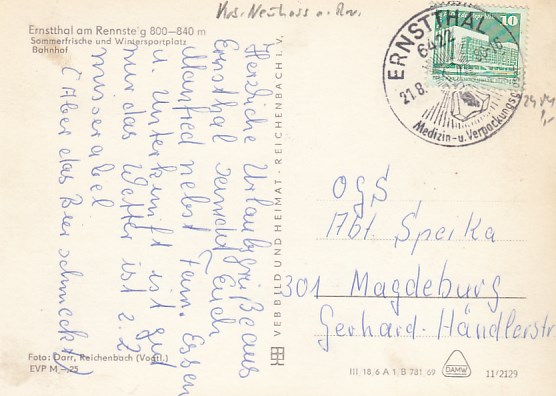 Krs. Neuhaus a. Rwg.
Ernstthal am Rennsteig 800—840 m
Sommerfrische und Wintersportplatz
Bahnhof
Herzliche Urlaubsgrüße aus
Ernsthal sendet Euch
Manfred nebst Fam. Essen
u. Unterkunft ist gut
nur das Wetter ist z. Z.
miserabel
(Aber das Bier schmeckt)
Foto: Darr, Reichenbach (Vogtl.)
EVP M —,25
VEB BILD UND HEIMAT · REICHENBACH i. V.
ERNSTTHAL
6422
21.8.
Medizin- u. Verpackungsg
10
OGS
Abt Speika
301 Magdeburg
Gerhard-Händlerstr
III 18 6 A 1 B 781 69
DAMW
11/2129